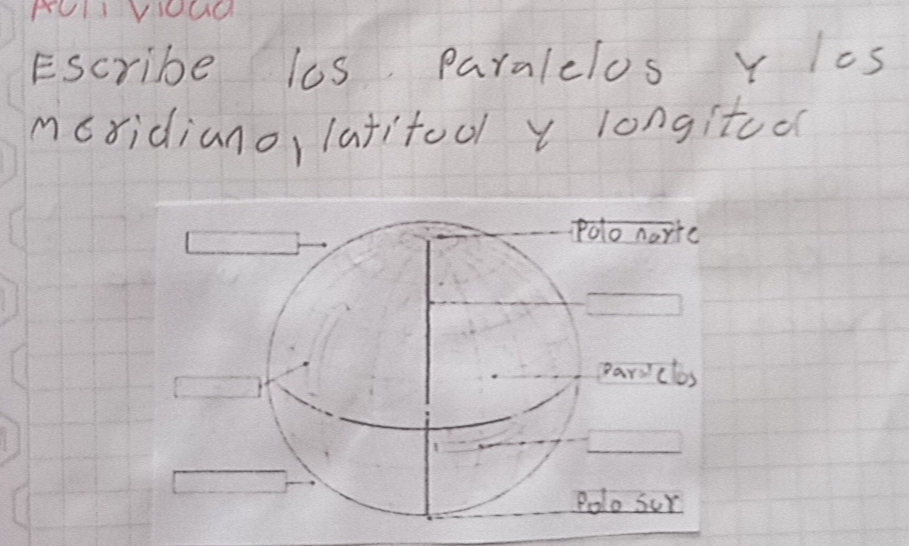 Actividad
Escribe los Paralelos y los
meridiano, latitud y longitud
Polo norte
Paralelos
Polo sur